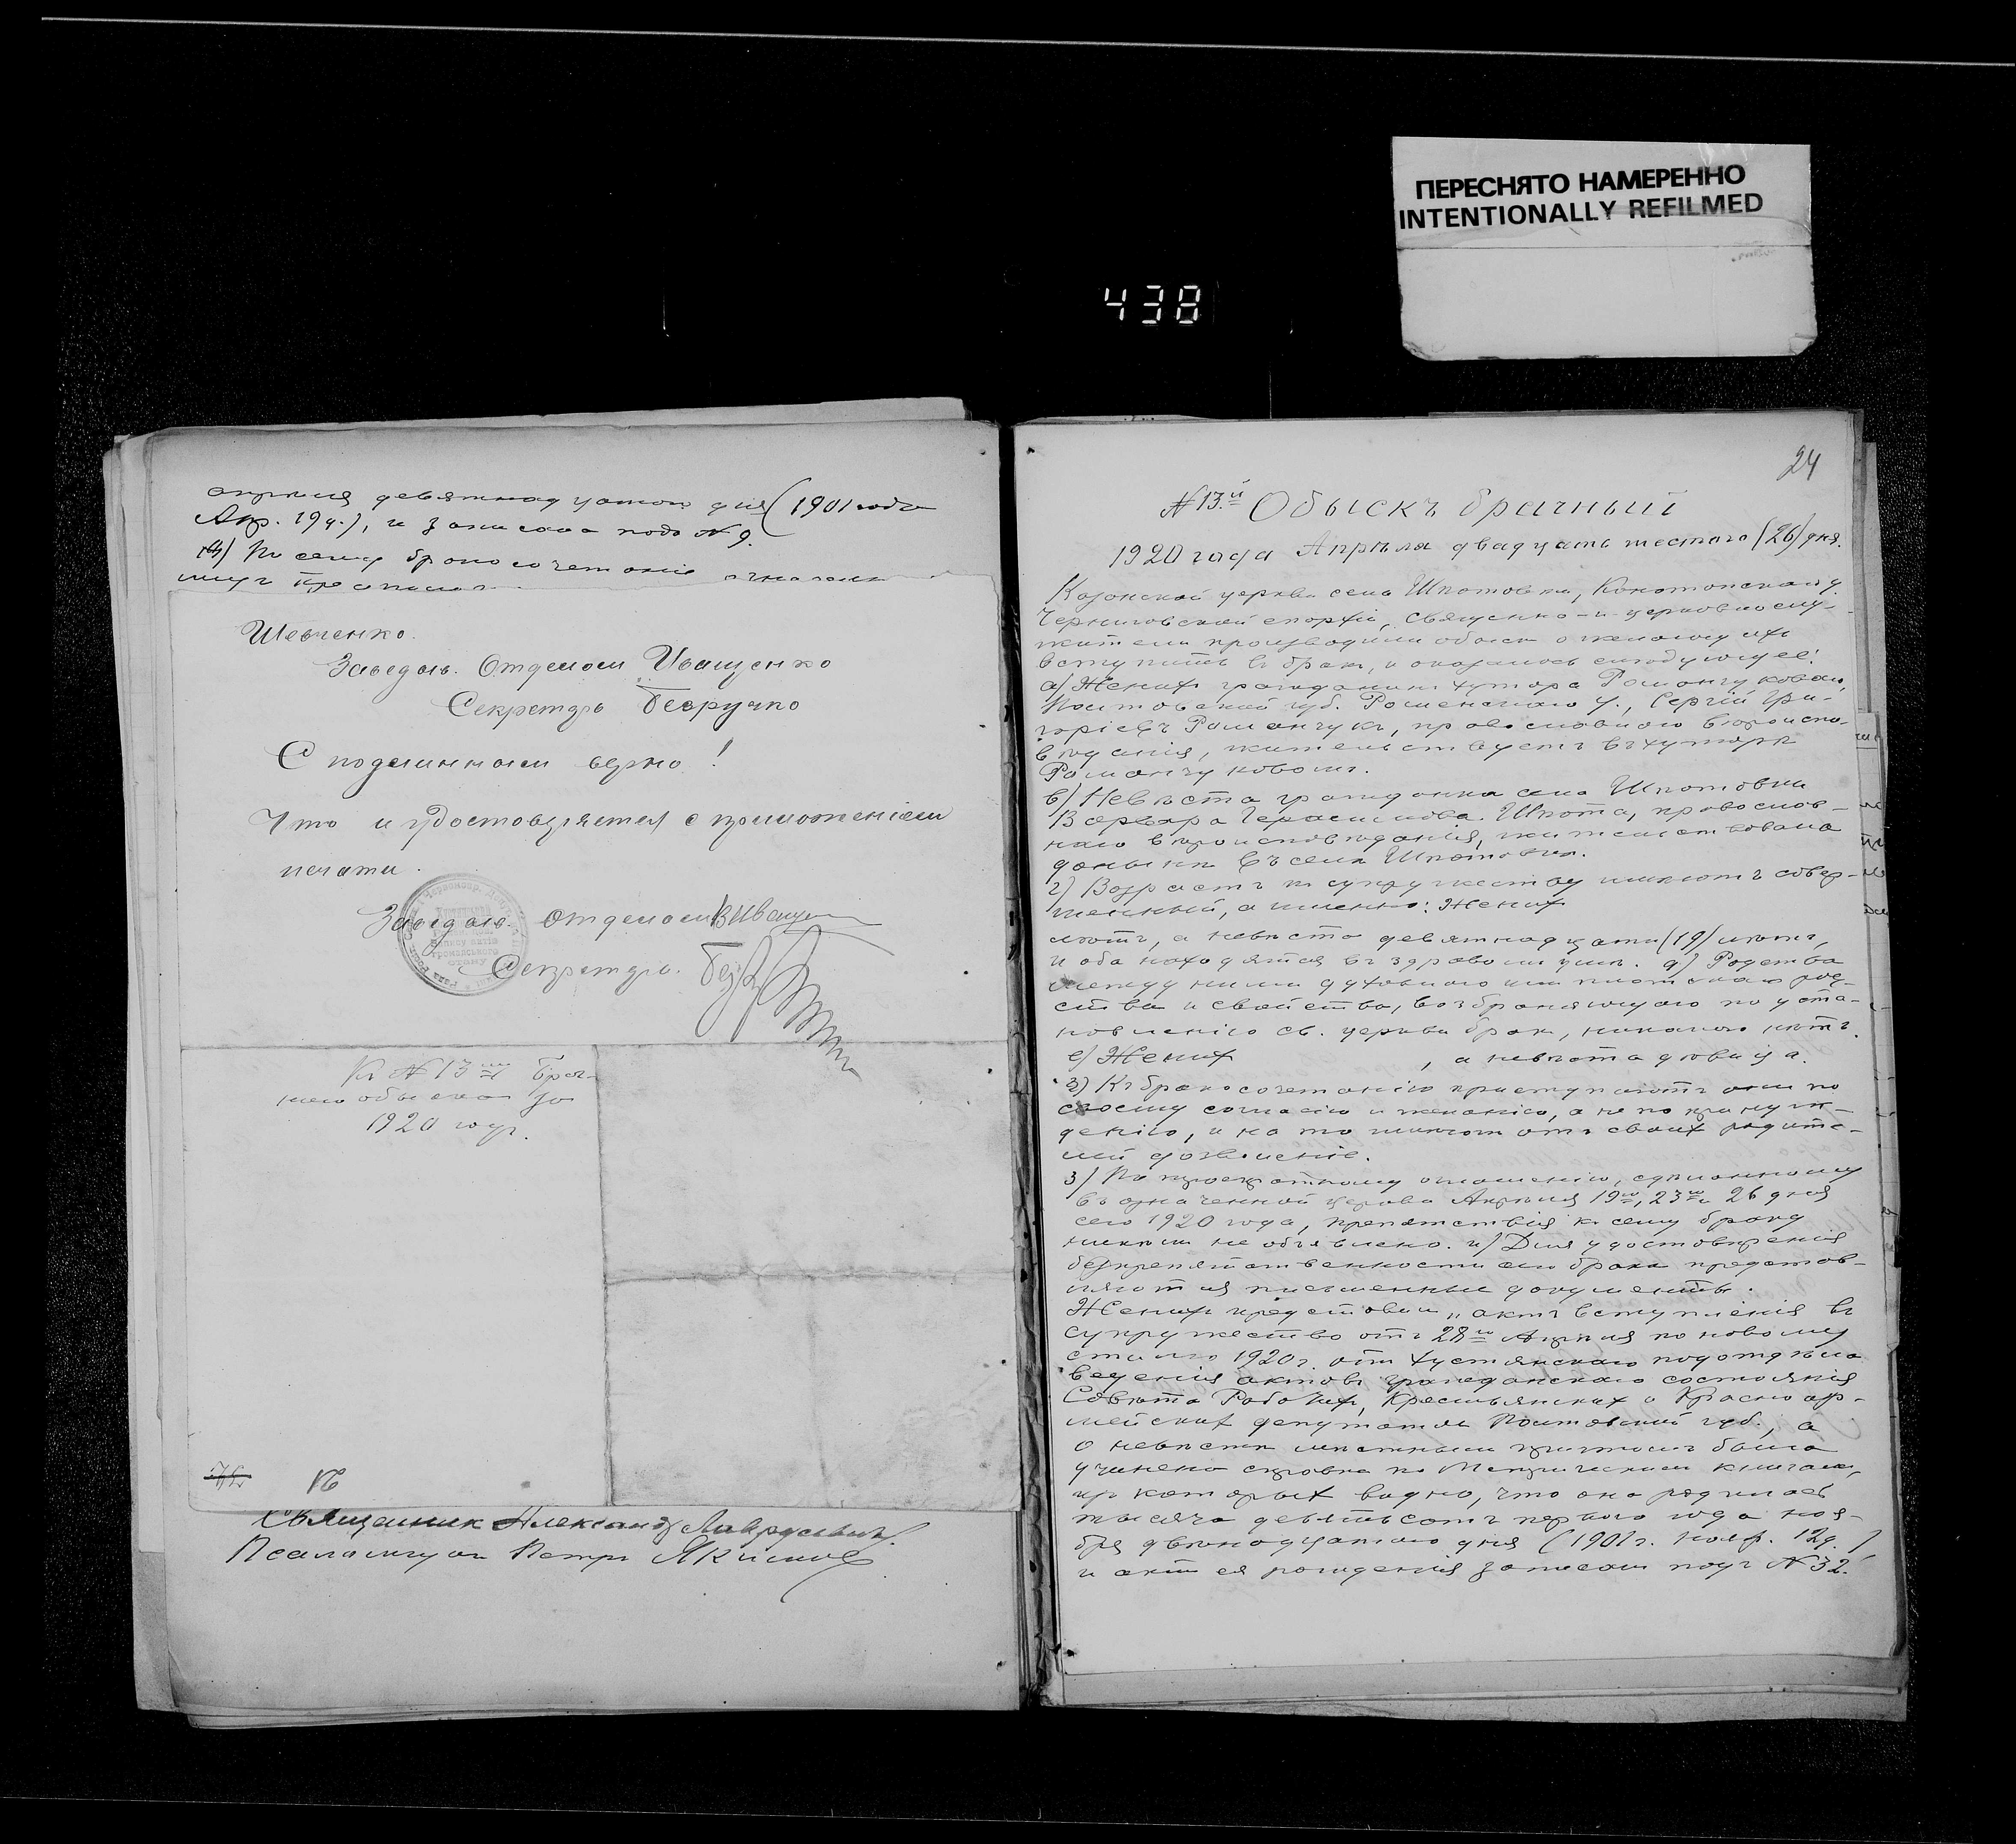 ПЕРЕСНЯТО НАМЕРЕННО
INTENTIONALLY REFILMED
438
апрѣля девятнадцатого дня (1901 года
Апр. 19 д.), и записана подъ № 9.
По сему бракосочетаніе означен
Шевченко.
Заведыв. Отделом Иващенко
Секретарь Безручко
С подлинным верно!
Что и удостоверяется с приложеніем
печати.
Заведыв. Отделом В Иващен
Секретарь. Без
Къ № 13му Брач-
ному обыску за
1920 годъ.
Священник Александр
Псаломщикъ Петръ Якимов
24
№ 13.й Обыскъ брачный
1920 года Апрѣля двадцать шестого (26) дня.
Казанской церкви села Шпотовки, Конотопскаго у.
Черниговской епархіи, священно- и церковнослу-
жители производили обыск о желающих
вступить въ брак, и оказалось следующее:
а) Жених гражданинъ хутора Романчукова,
Полтовской губ. Роменскаго у., Сергій Гри-
горіевъ Романчукъ, православнаго вѣроиспо-
вѣданія, жительствуетъ въ хуторѣ
Романчуковомъ.
в) Невѣста гражданка села Шпотовки
Варвара Герасимова Шпота, православ-
наго вѣроисповѣданія, жительствовала
донынѣ въ селѣ Шпотовкѣ.
г) Возрастъ къ супружеству имѣютъ совер-
шенный, а именно: Жених
лѣтъ, а невѣста девятнадцати (19) лѣтъ,
и оба находятся въ здравомъ умѣ. д) Родства
между ними духовнаго или плотскаго род-
ства и свойства, возбраняющаго по уста-
новленію св. церкви брак, никакого нѣтъ.
е) Жених , а невѣста девица.
з) Къ бракосочетанію приступаютъ они по
своему согласію и желанію, а не по принуж-
денію, и на то имѣют отъ своих родите-
лей дозволеніе.
з) По троекратному оглашенію, сделанному
въ означенной церкви Апрѣля 19го, 23го и 26 дня
сего 1920 года, препятствія къ сему браку
никѣмъ не объявлено. и) Для удостовѣренія
безпрепятственности сего брака представ-
ляются письменные документы.
Жених представил „актъ вступленія въ
супружество отъ 28го Апрѣля по новому
стилю 1920 г. от Хустянскаго подотдѣла
веденія актовъ гражданскаго состоянія
Совѣта Рабочих, Крестьянских и Красноар-
мейских депутатов Полтавской губ., а
о невѣстѣ мѣстнымъ причтомъ была
учинена справка по Метрическим книгам,
из которых видно, что она родилась
тысяча девятьсотъ перваго года ноя-
бря двенадцатаго дня (1901 г. Нояб. 12 д.)
и акт ея рожденія записан подъ № 32.